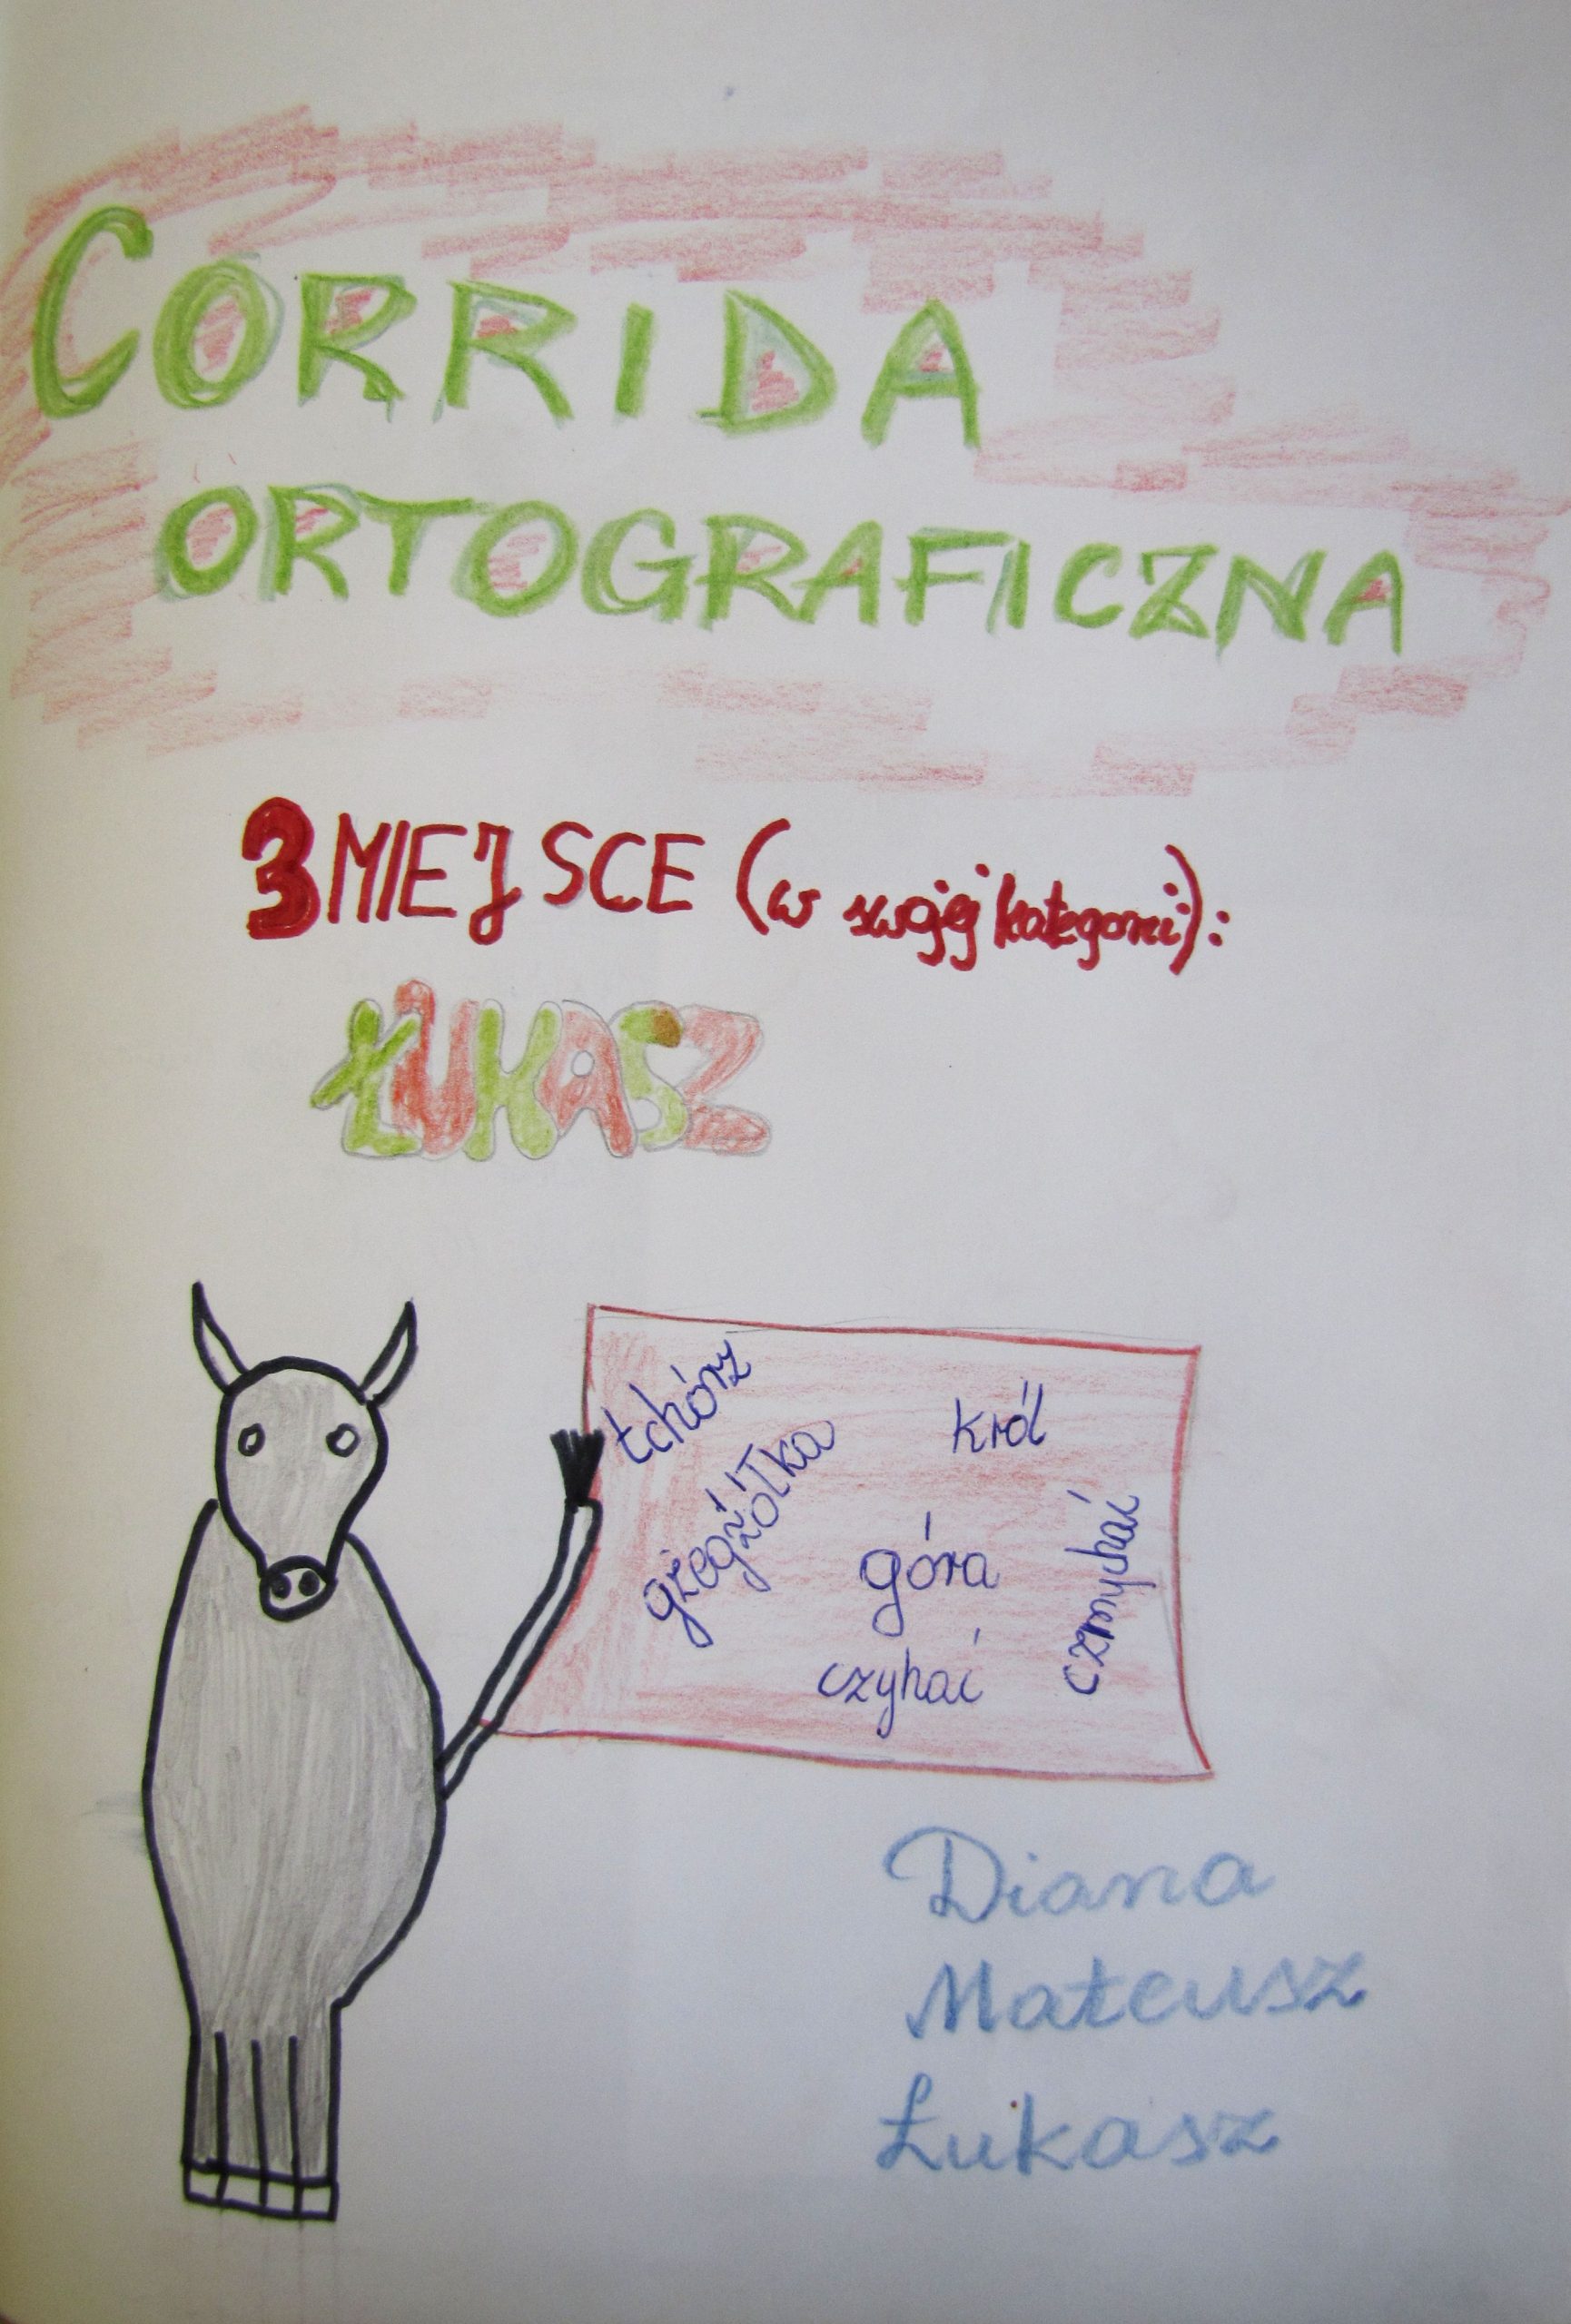 CORRIDA
ORTOGRAFICZNA
3 MIEJSCE (w swojej kategorii):
ŁUKASZ
tchórz
gżegżółka
król
góra
czmychać
czyhać
Diana
Mateusz
Łukasz